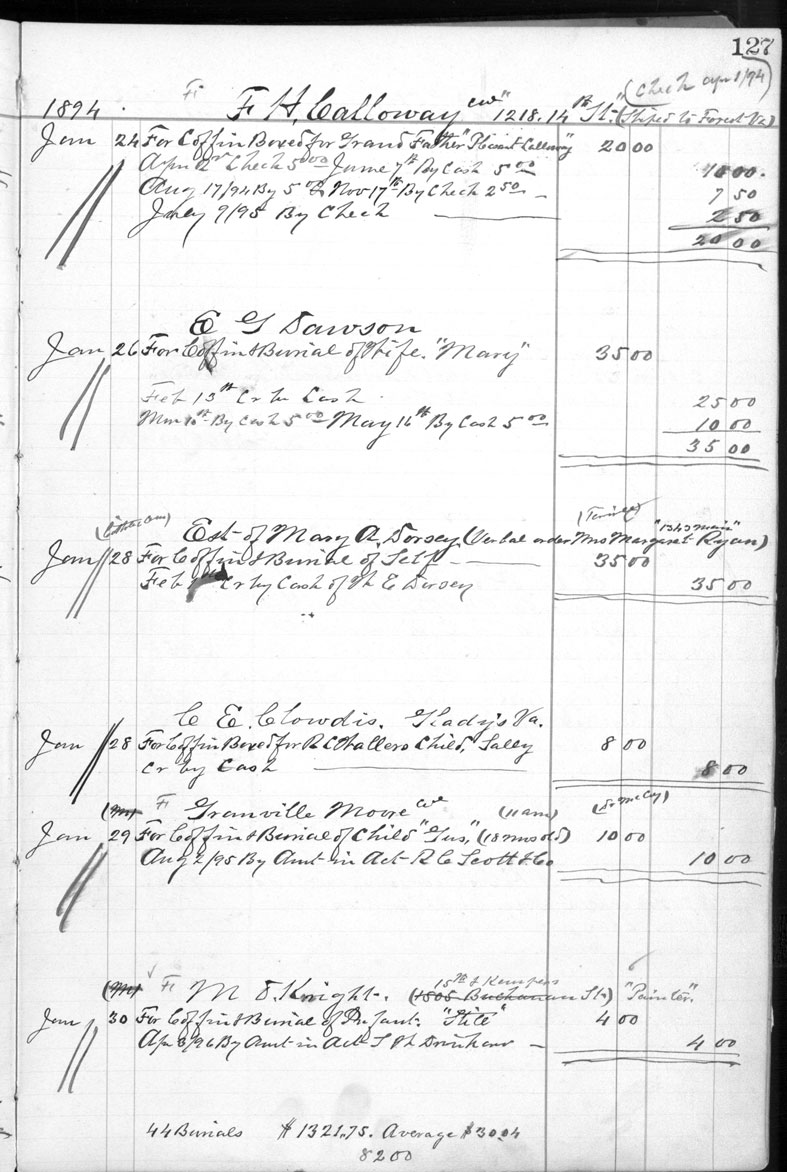 127
(Check Apr 1/94)
1894. F. H. Calloway "col" 1218. 14th St. (Shiped to Forest Va)
Jan 24 For Coffin Boxed for Grand Father "Calloway" 20 00
Apr 2nd Check 5 00 June 7th By Cash 5 00 10 00.
Aug 17/94 By 5 00 Nov 17th By Check 2 50 - 7 50
July 9/95 By Check 2 50
20 00
E G Dawson
Jan 26 For Coffin & Burial of Wife. "Mary" 35 00
Feb 13th Cr by Cash 25 00
By Cash 5 00 May 16th By Cash 5 00 10 00
35 00
Est of Mary A. Dorsey (Verbal order Mrs Margaret Ryan) "1343 Main"
Jan 28 For Coffin & Burial of Self 35 00
Feb Cr by Cash of E Dorsey 35 00
C E. Clowdis. Gladys Va.
Jan 28 For Coffin Boxed for Child, Sally 8 00
Cr by Cash 8 00
Granville Moore col (11 am)
Jan 29 For Coffin & Burial of Child "Gus," (18 mos old) 10 00
Aug 2/95 By Amt in Act R C Scott & Co 10 00
15th & Kempers
M D. Knight. (1808 Buchanan St.) "Painter."
Jan 30 For Coffin & Burial of Infant. 4 00
Apr 3/96 By Amt in Act - 4 00
44 Burials $1321.75. Average $30.04
8200